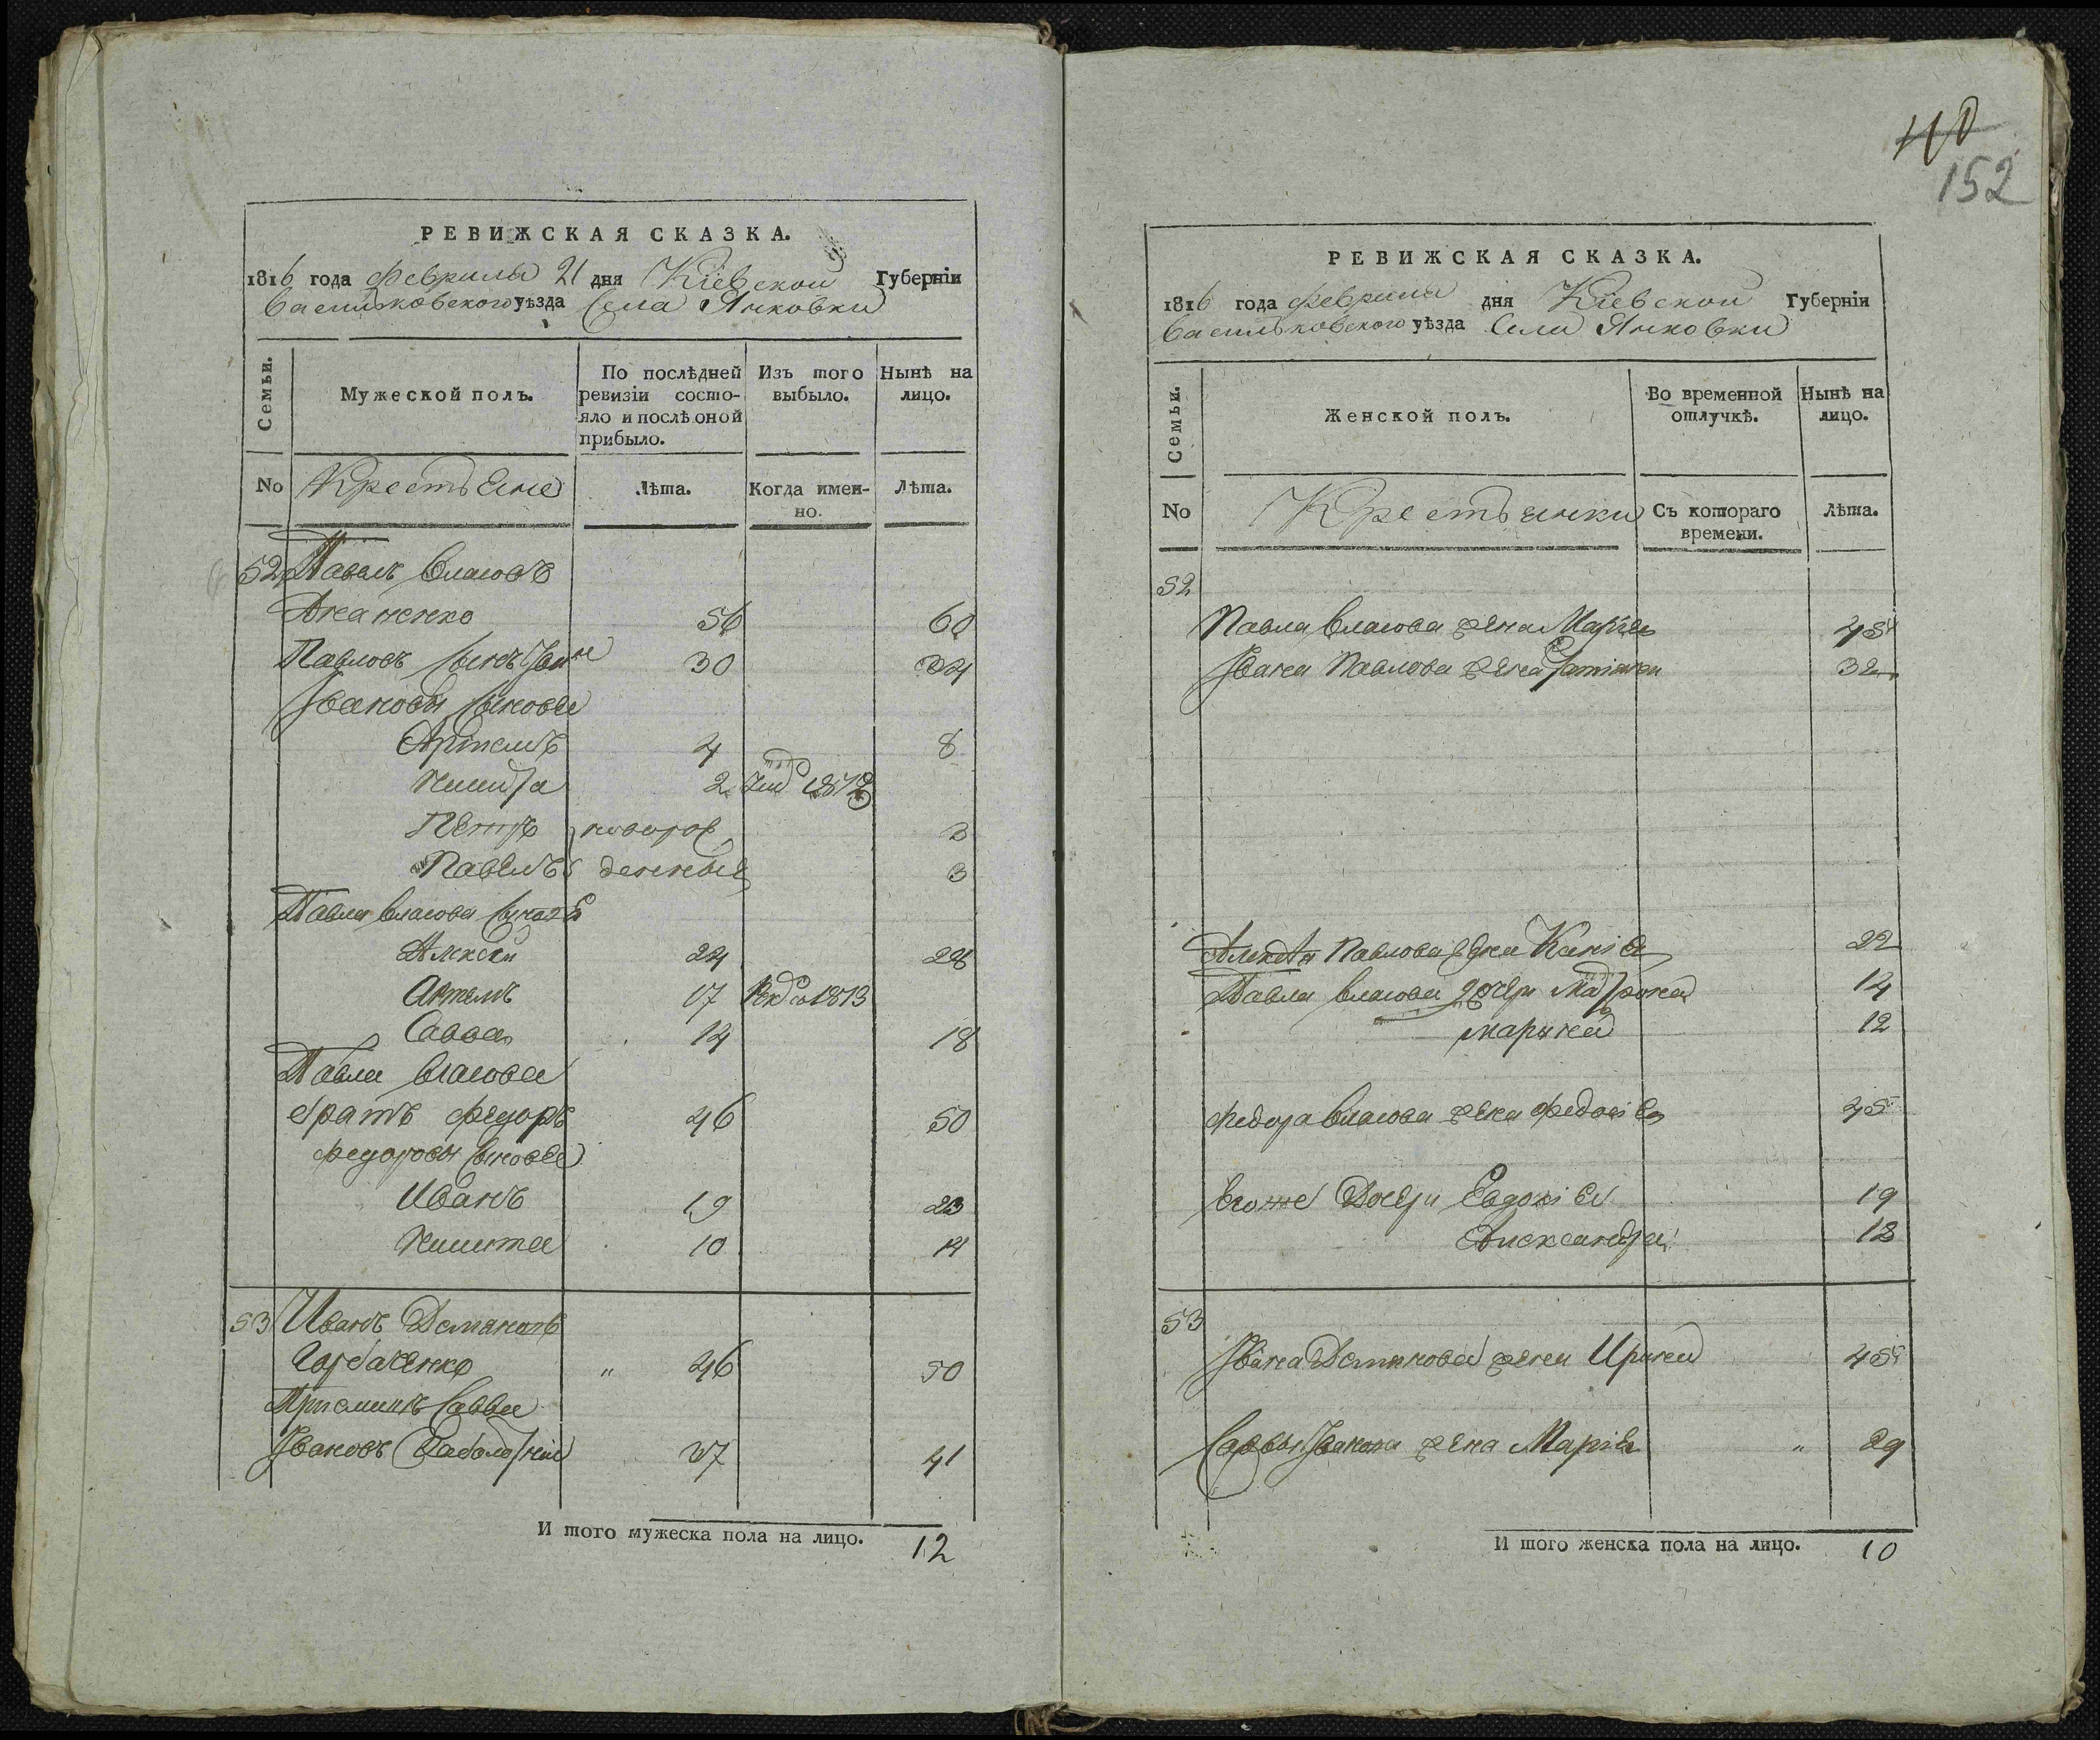 РЕВИЖСКАЯ СКАЗКА.
1816 года февраля 21 дня Кіевской Губерніи
Васильковского уѣзда Села Янковки
Семьи.
Мужеской полъ.
По послѣдней ревизіи состояло и послѣ оной прибыло.
Изъ того выбыло.
Нынѣ на лицо.
No
Крестьяне
Лѣта.
Когда имен-но.
Лѣта.
52 Павелъ Власовъ
56 60
Павловъ сынъ Іванъ 30 34
Івановы сынове
Артемъ 4 8
Никита 2 1812
Петръ новорож 3
Павелъ денныя 3
Павла Власова сынове
Алексей 24 28
Артемъ 17 1813
Савва 14 18
Павла Власова
братъ Федоръ 46 50
Федоровы сынове
Иванъ 19 23
Никита 10 14
53 Иванъ Демяновъ
Горбаченко " 46 50
Приемышъ Савва
Івановъ 37 41
И того мужеска пола на лицо. 12
110
152
РЕВИЖСКАЯ СКАЗКА.
1816 года февраля дня Кіевской Губерніи
Васильковского уѣзда Села Янковки
Семьи.
Женской полъ.
Во временной отлучкѣ.
Нынѣ на лицо.
No
Крестьянки
Съ котораго времени.
Лѣта.
52
Павла Власова жена Марія 45
Івана Павлова жена Татіана 32
Алексея Павлова жена 22
Павла Власова дочери Мадрона 14
Марина 12
Федора Власова жена Федосія 45
Егоже Дочери Евдокія 19
Александра 18
53
Івана Демянова жена Ирина 45
Саввы Іванова жена Марія " 29
И того женска пола на лицо. 10